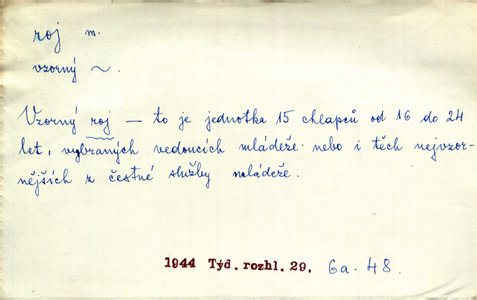 roj m.
vzorný ~.
Vzorný roj — to je jednotka 15 chlapců od 16 do 24
let, vybraných vedoucích mládeže nebo i těch nejvzor-
nějších z čestné služby mládeže.
1944 Týd. rozhl. 29. 6a. 48.